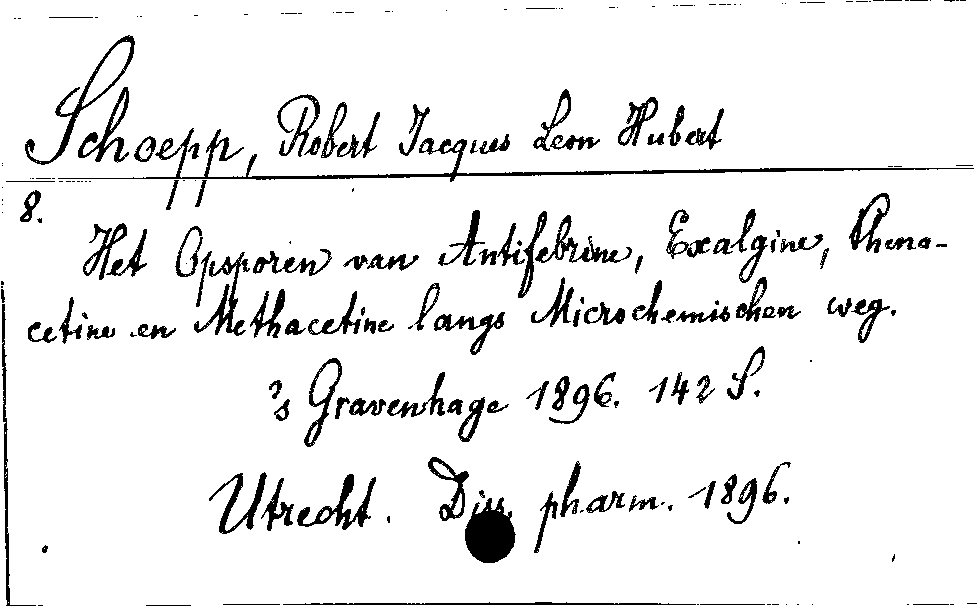 Schoepp, Robert Jacques Leon Hubert
8.
Het Opsporen van Antifebrine, Exalgine, Phena-
cetine en Methacetine langs Microchemischen weg.
's Gravenhage 1896. 142 S.
Utrecht. Diss. pharm. 1896.